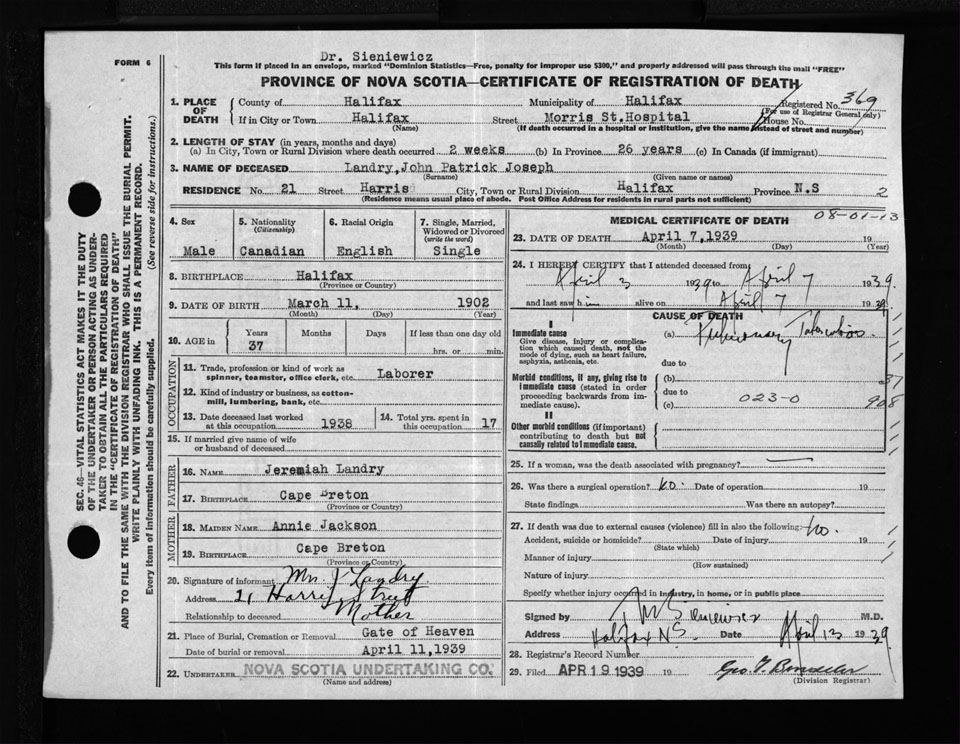 Dr. Sieniewicz
FORM 6
This form if placed in an envelope, marked "Dominion Statistics—Free, penalty for improper use $300," and properly addressed will pass through the mail "FREE"
PROVINCE OF NOVA SCOTIA—CERTIFICATE OF REGISTRATION OF DEATH
SEC. 46—VITAL STATISTICS ACT MAKES IT THE DUTY
OF THE UNDERTAKER OR PERSON ACTING AS UNDER-
TAKER TO OBTAIN ALL THE PARTICULARS REQUIRED
IN THE "CERTIFICATE OF REGISTRATION OF DEATH"
AND TO FILE THE SAME WITH THE DIVISION REGISTRAR WHO SHALL ISSUE THE BURIAL PERMIT.
WRITE PLAINLY WITH UNFADING INK. THIS IS A PERMANENT RECORD.
Every item of information should be carefully supplied. (See reverse side for instructions.)
1. PLACE OF DEATH County of Halifax Municipality of Halifax Registered No. 369
(For use of Registrar General only)
If in City or Town Halifax Street Morris St.Hospital House No.
(Name) (If death occurred in a hospital or institution, give the name instead of street and number)
2. LENGTH OF STAY (in years, months and days)
(a) In City, Town or Rural Division where death occurred 2 weeks (b) In Province 26 years (c) In Canada (if immigrant)
3. NAME OF DECEASED Landry,John Patrick Joseph
(Surname) (Given name or names)
RESIDENCE No. 21 Street Harris City, Town or Rural Division Halifax Province N.S 2
(Residence means usual place of abode. Post Office Address for residents in rural parts not sufficient)
4. Sex
Male
5. Nationality
(Citizenship)
Canadian
6. Racial Origin
English
7. Single, Married,
Widowed or Divorced
(write the word)
Single
8. BIRTHPLACE Halifax
(Province or Country)
9. DATE OF BIRTH March 11, 1902
(Month) (Day) (Year)
10. AGE in Years Months Days If less than one day old
37 hrs. or min.
OCCUPATION
11. Trade, profession or kind of work as
spinner, teamster, office clerk, etc. Laborer
12. Kind of industry or business, as cotton-
mill, lumbering, bank, etc.
13. Date deceased last worked
at this occupation 1938
14. Total yrs. spent in
this occupation 17
15. If married give name of wife
or husband of deceased
FATHER
16. NAME Jeremiah Landry
17. BIRTHPLACE Cape Breton
(Province or Country)
MOTHER
18. MAIDEN NAME Annie Jackson
19. BIRTHPLACE Cape Breton
(Province or Country)
20. Signature of informant Mrs J Landry.
Address 21 Harris Street
Relationship to deceased Mother
21. Place of Burial, Cremation or Removal Gate of Heaven
Date of burial or removal April 11,1939
22. UNDERTAKER NOVA SCOTIA UNDERTAKING CO.
(Name and address)
MEDICAL CERTIFICATE OF DEATH 08-01-13
23. DATE OF DEATH April 7,1939 19
(Month) (Day) (Year)
24. I HEREBY CERTIFY that I attended deceased from
April 3 1939 to April 7 1939.
and last saw him alive on April 7 1939.
CAUSE OF DEATH
I
Immediate cause
Give disease, injury or complica-
tion which caused death, not the
mode of dying, such as heart failure,
asphyxia, asthenia, etc.
(a) Pulmonary Tuberculosis.
due to
Morbid conditions, if any, giving rise to
immediate cause (stated in order
proceeding backwards from im-
mediate cause).
(b) 37
due to
(c) 023-0 908
II
Other morbid conditions (if important)
contributing to death but not
causally related to immediate cause.
25. If a woman, was the death associated with pregnancy?
26. Was there a surgical operation? No. Date of operation 19
State findings Was there an autopsy?
27. If death was due to external causes (violence) fill in also the following: No.
Accident, suicide or homicide? Date of injury 19
(State which)
Manner of injury
(How sustained)
Nature of injury
Specify whether injury occurred in industry, in home, or in public place
Signed by Sieniewicz M.D.
Address Halifax N.S. Date April 13 1939.
28. Registrar's Record Number
29. Filed APR 19 1939 19
(Division Registrar)